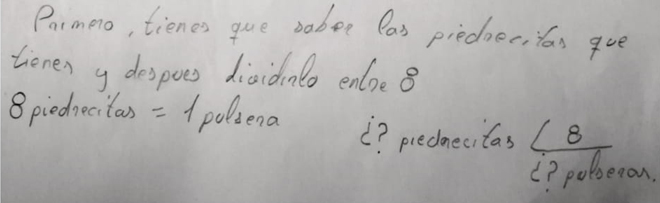 Primero, tienes que saber las piedrecitas que
tienes y despues dividirlo entre 8
8 piedrecitas = 1 pulsera
¿? piedrecitas 8
¿? pulseras.